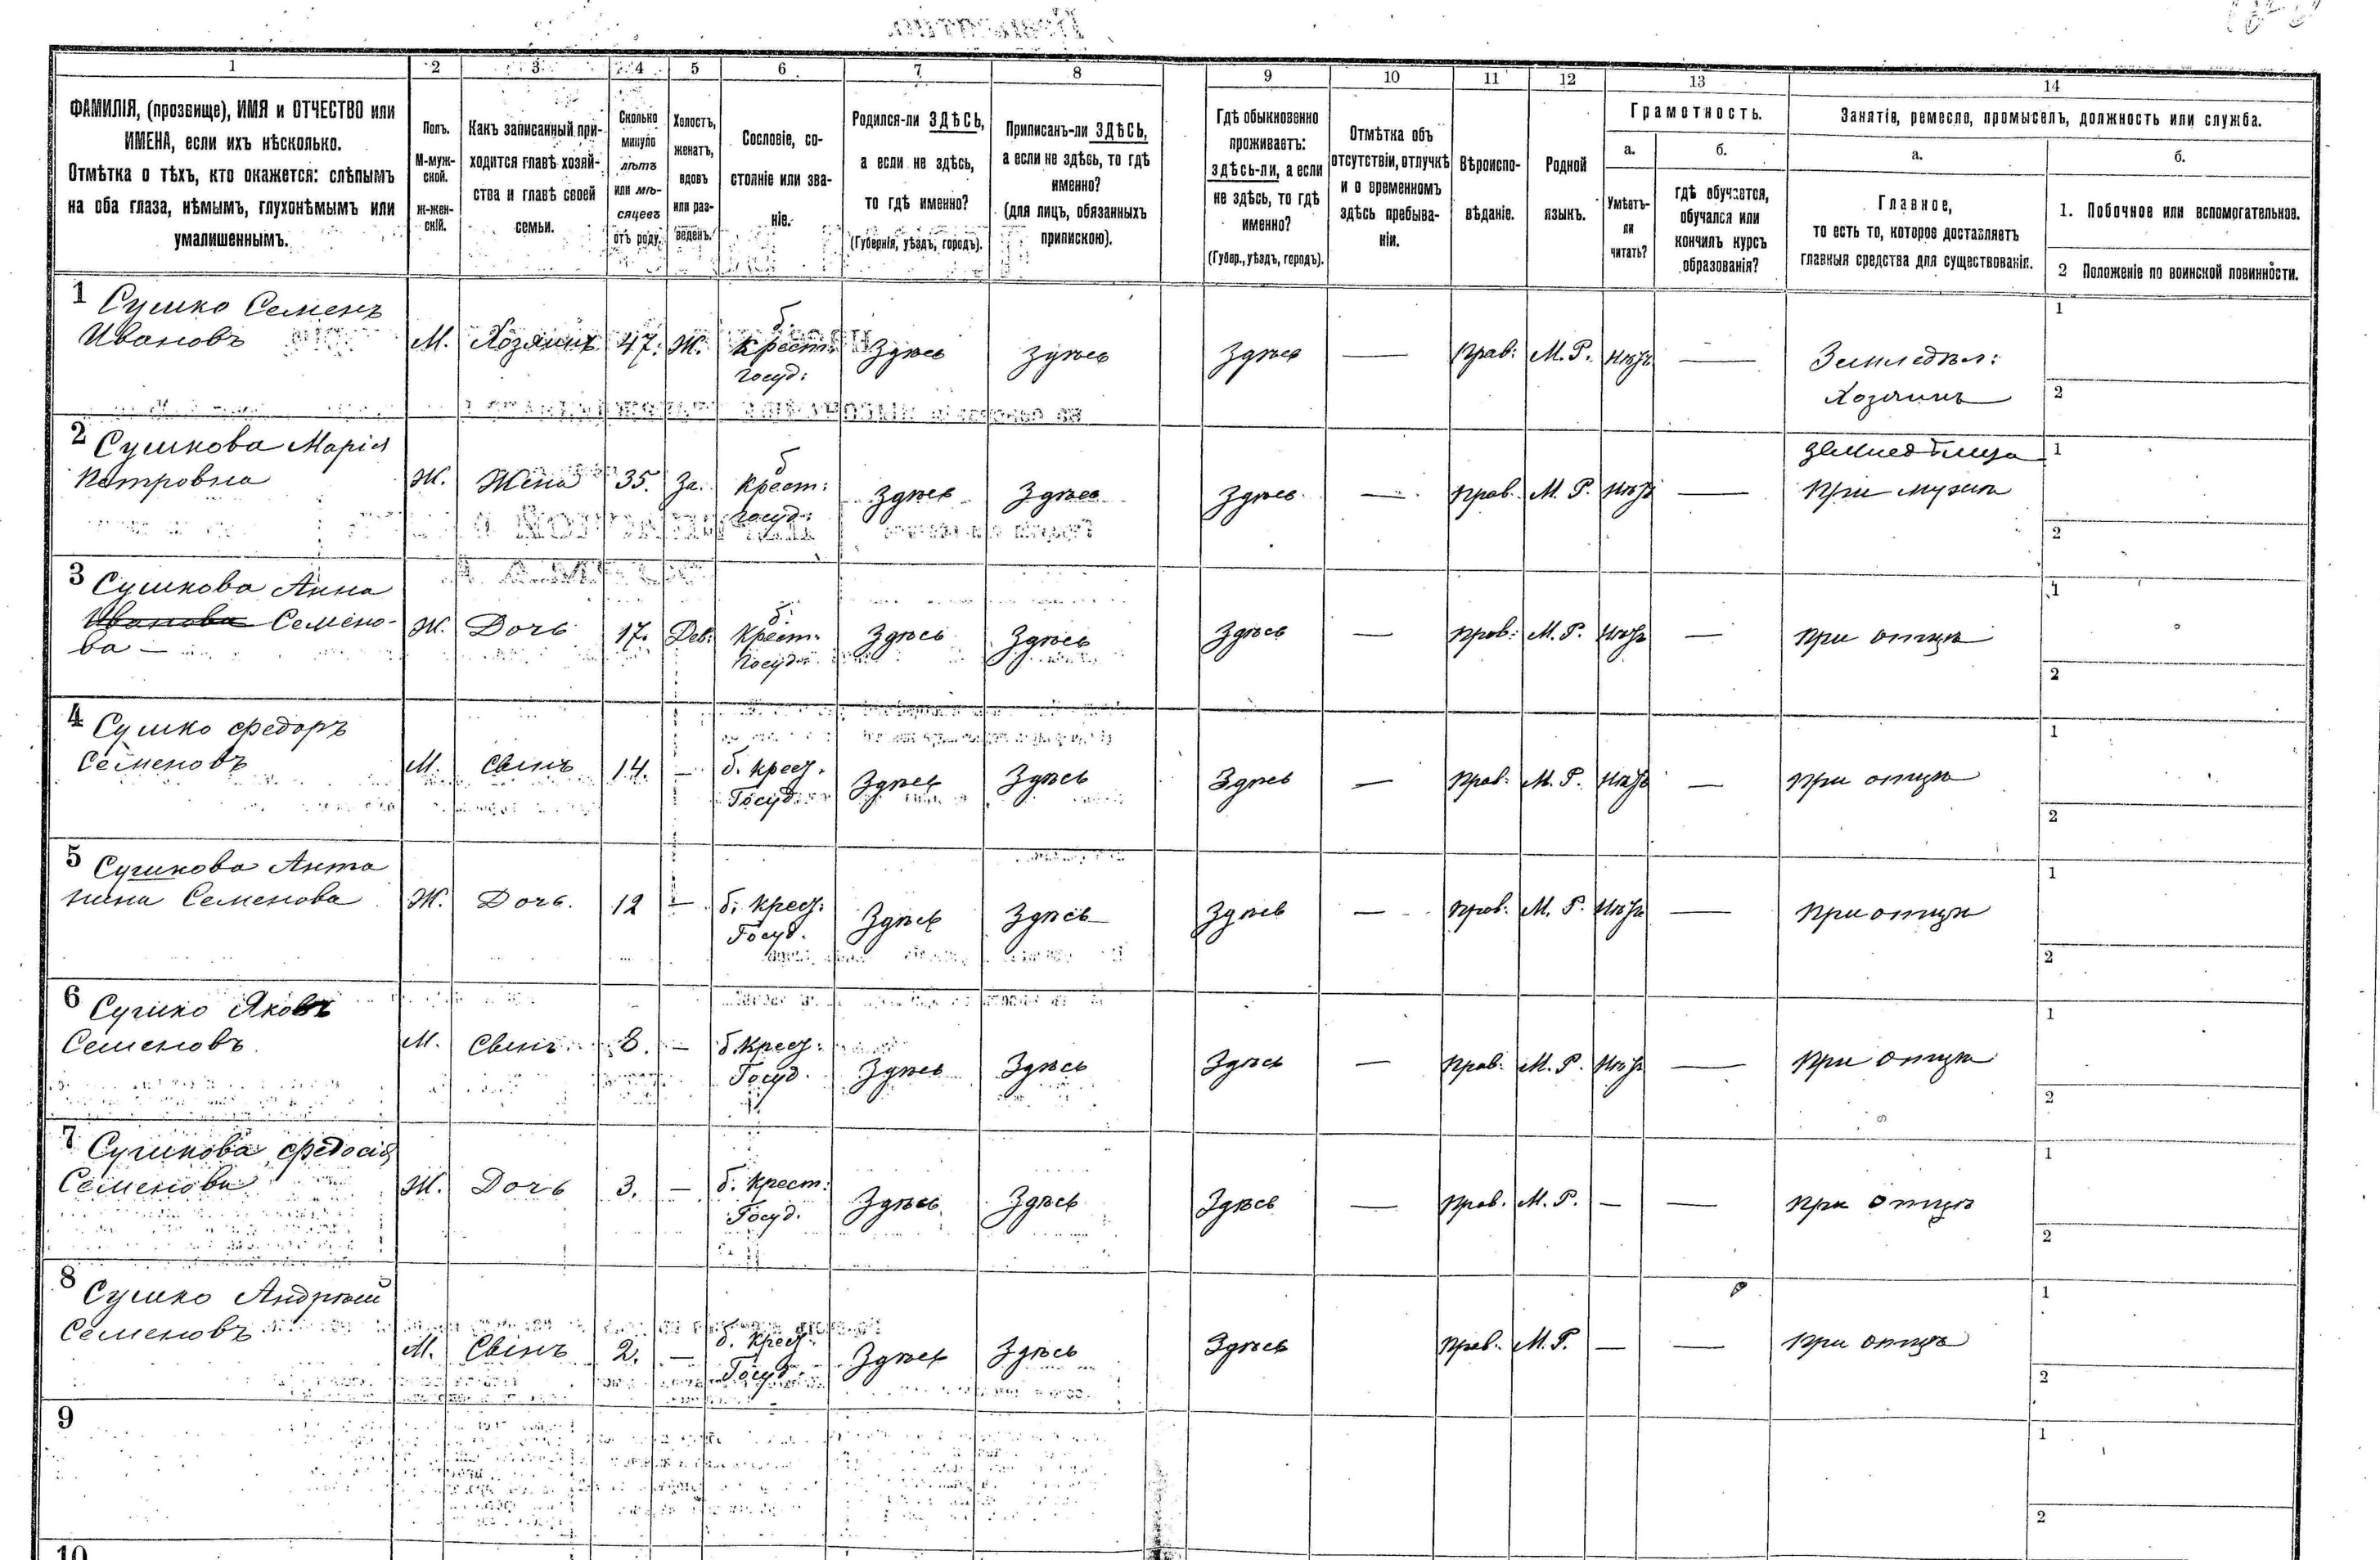 1 2 3 4 5 6 7 8 9 10 11 12 13 14
ФАМИЛІЯ, (прозвище), ИМЯ и ОТЧЕСТВО или
ИМЕНА, если ихъ нѣсколько.
Отмѣтка о тѣхъ, кто окажется: слѣпымъ
на оба глаза, нѣмымъ, глухонѣмымъ или
умалишеннымъ.
Полъ.
М-муж-
ской.
Ж-жен-
скій.
Какъ записанный при-
ходится главѣ хозяй-
ства и главѣ своей
семьи.
Сколько
минуло
лѣтъ
или мѣ-
сяцевъ
отъ роду.
Холостъ,
женатъ,
вдовъ
или раз-
веденъ.
Сословіе, со-
стояніе или зва-
ніе.
Родился-ли ЗДѢСЬ,
а если не здѣсь,
то гдѣ именно?
(Губернія, уѣздъ, городъ).
Приписанъ-ли ЗДѢСЬ,
а если не здѣсь, то гдѣ
именно?
(для лицъ, обязанныхъ
припискою).
Гдѣ обыкновенно
проживаетъ:
здѣсь-ли, а если
не здѣсь, то гдѣ
именно?
(Губер., уѣздъ, городъ).
Отмѣтка объ
отсутствіи, отлучкѣ
и о временномъ
здѣсь пребыва-
ніи.
Вѣроиспо-
вѣданіе.
Родной
языкъ.
Грамотность.
а.
Умѣетъ-
ли
читать?
б.
гдѣ обучается,
обучался или
кончилъ курсъ
образованія?
Занятія, ремесло, промыселъ, должность или служба.
а.
Главное,
то есть то, которое доставляетъ
главныя средства для существованія.
б.
1. Побочное или вспомогательное.
2 Положеніе по воинской повинности.
1 Сушко Семенъ
Ивановъ
М. Хозяинъ 47. Ж. б. крест. госуд: Здѣсь Здѣсь Здѣсь — Прав: М. Р. Нѣтъ — Земледѣл:
Хозяинъ
1
2
2 Сушкова Марія
Петровна
Ж. Жена 35. За. б крест: госуд: Здѣсь Здѣсь Здѣсь — Прав. М. Р. Нѣтъ —
При мужѣ
1
2
3 Сушкова Анна
Иванова Семено-
ва —
Ж. Дочь 17. Дев: б. Крест: Госуд: Здѣсь Здѣсь Здѣсь — Прав: М. Р. Нѣтъ — при отцѣ
1
2
4 Сушко Федоръ
Семеновъ
М. Сынъ 14. — б. крест. Госуд. Здѣсь Здѣсь Здѣсь — Прав: М. Р. Нѣтъ — при отцѣ
1
2
5 Сушкова Анта
нина Семенова
Ж. Дочь. 12 — б. крест: Госуд. Здѣсь Здѣсь Здѣсь — Прав. М. Р. Нѣтъ — при отцѣ
1
2
6 Сушко Яковъ
Семеновъ
М. Сынъ. 8. — б. крест: Госуд. Здѣсь Здѣсь Здѣсь — Прав. М. Р. Нѣтъ — при отцѣ
1
2
7 Сушкова Федосія
Семенова
Ж. Дочь 3. — б. крест: Госуд. Здѣсь Здѣсь Здѣсь — Прав. М. Р. — — при отцѣ
1
2
8 Сушко Андрѣй
Семеновъ
М. Сынъ 2. — б. крест. Госуд. Здѣсь Здѣсь Здѣсь Прав. М. Р. — — при отцѣ
1
2
9
1
2
10